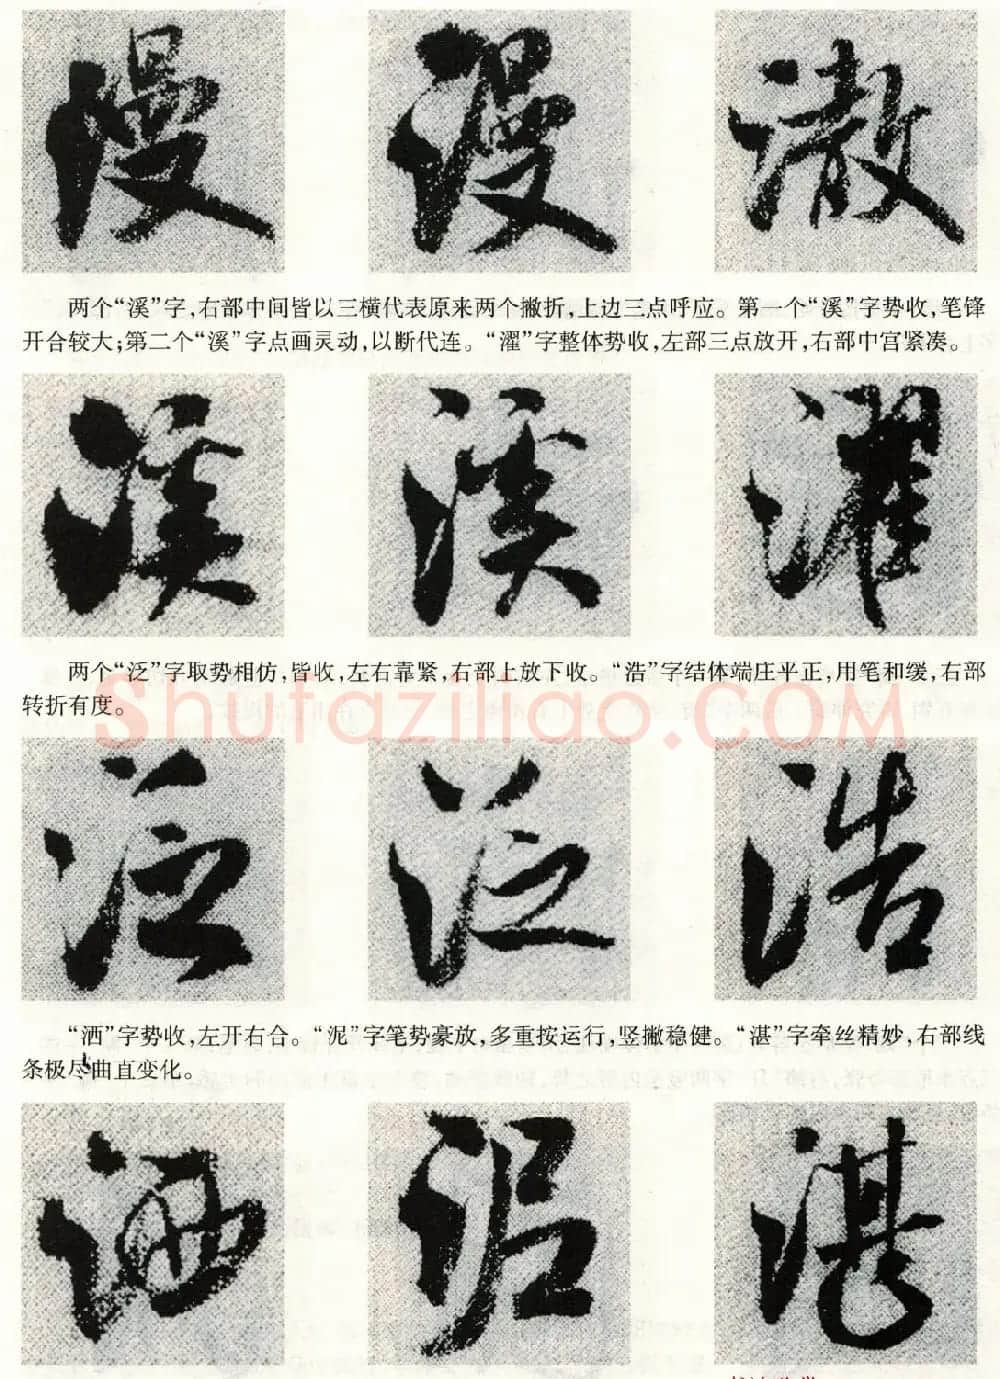 漫 漫 澈
两个“溪”字，右部中间皆以三横代表原来两个撇折，上边三点呼应。第一个“溪”字势收，笔锋
开合较大；第二个“溪”字点画灵动，以断代连。“濯”字整体势收，左部三点放开，右部中宫紧凑。
溪 溪 濯
两个“泛”字取势相仿，皆收，左右靠紧，右部上放下收。“浩”字结体端庄平正，用笔和缓，右部
转折有度。
shufaziliao.com
泛 泛 浩
“洒”字势收，左开右合。“泥”字笔势豪放，多重按运行，竖撇稳健。“湛”字牵丝精妙，右部线
条极尽曲直变化。
洒 泥 湛